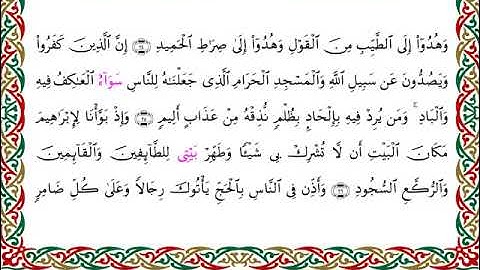 وَهُدُوٓا۟ إِلَى ٱلطَّيِّبِ مِنَ ٱلْقَوْلِ وَهُدُوٓا۟ إِلَىٰ صِرَٰطِ ٱلْحَمِيدِ ۝٢٤ إِنَّ ٱلَّذِينَ كَفَرُوا۟
وَيَصُدُّونَ عَن سَبِيلِ ٱللَّهِ وَٱلْمَسْجِدِ ٱلْحَرَامِ ٱلَّذِى جَعَلْنَٰهُ لِلنَّاسِ سَوَآءً ٱلْعَٰكِفُ فِيهِ
وَٱلْبَادِ ۚ وَمَن يُرِدْ فِيهِ بِإِلْحَادٍۭ بِظُلْمٍ نُّذِقْهُ مِنْ عَذَابٍ أَلِيمٍ ۝٢٥ وَإِذْ بَوَّأْنَا لِإِبْرَٰهِيمَ
مَكَانَ ٱلْبَيْتِ أَن لَّا تُشْرِكْ بِى شَيْـًٔا وَطَهِّرْ بَيْتِى لِلطَّآئِفِينَ وَٱلْقَآئِمِينَ
وَٱلرُّكَّعِ ٱلسُّجُودِ ۝٢٦ وَأَذِّن فِى ٱلنَّاسِ بِٱلْحَجِّ يَأْتُوكَ رِجَالًا وَعَلَىٰ كُلِّ ضَامِرٍ